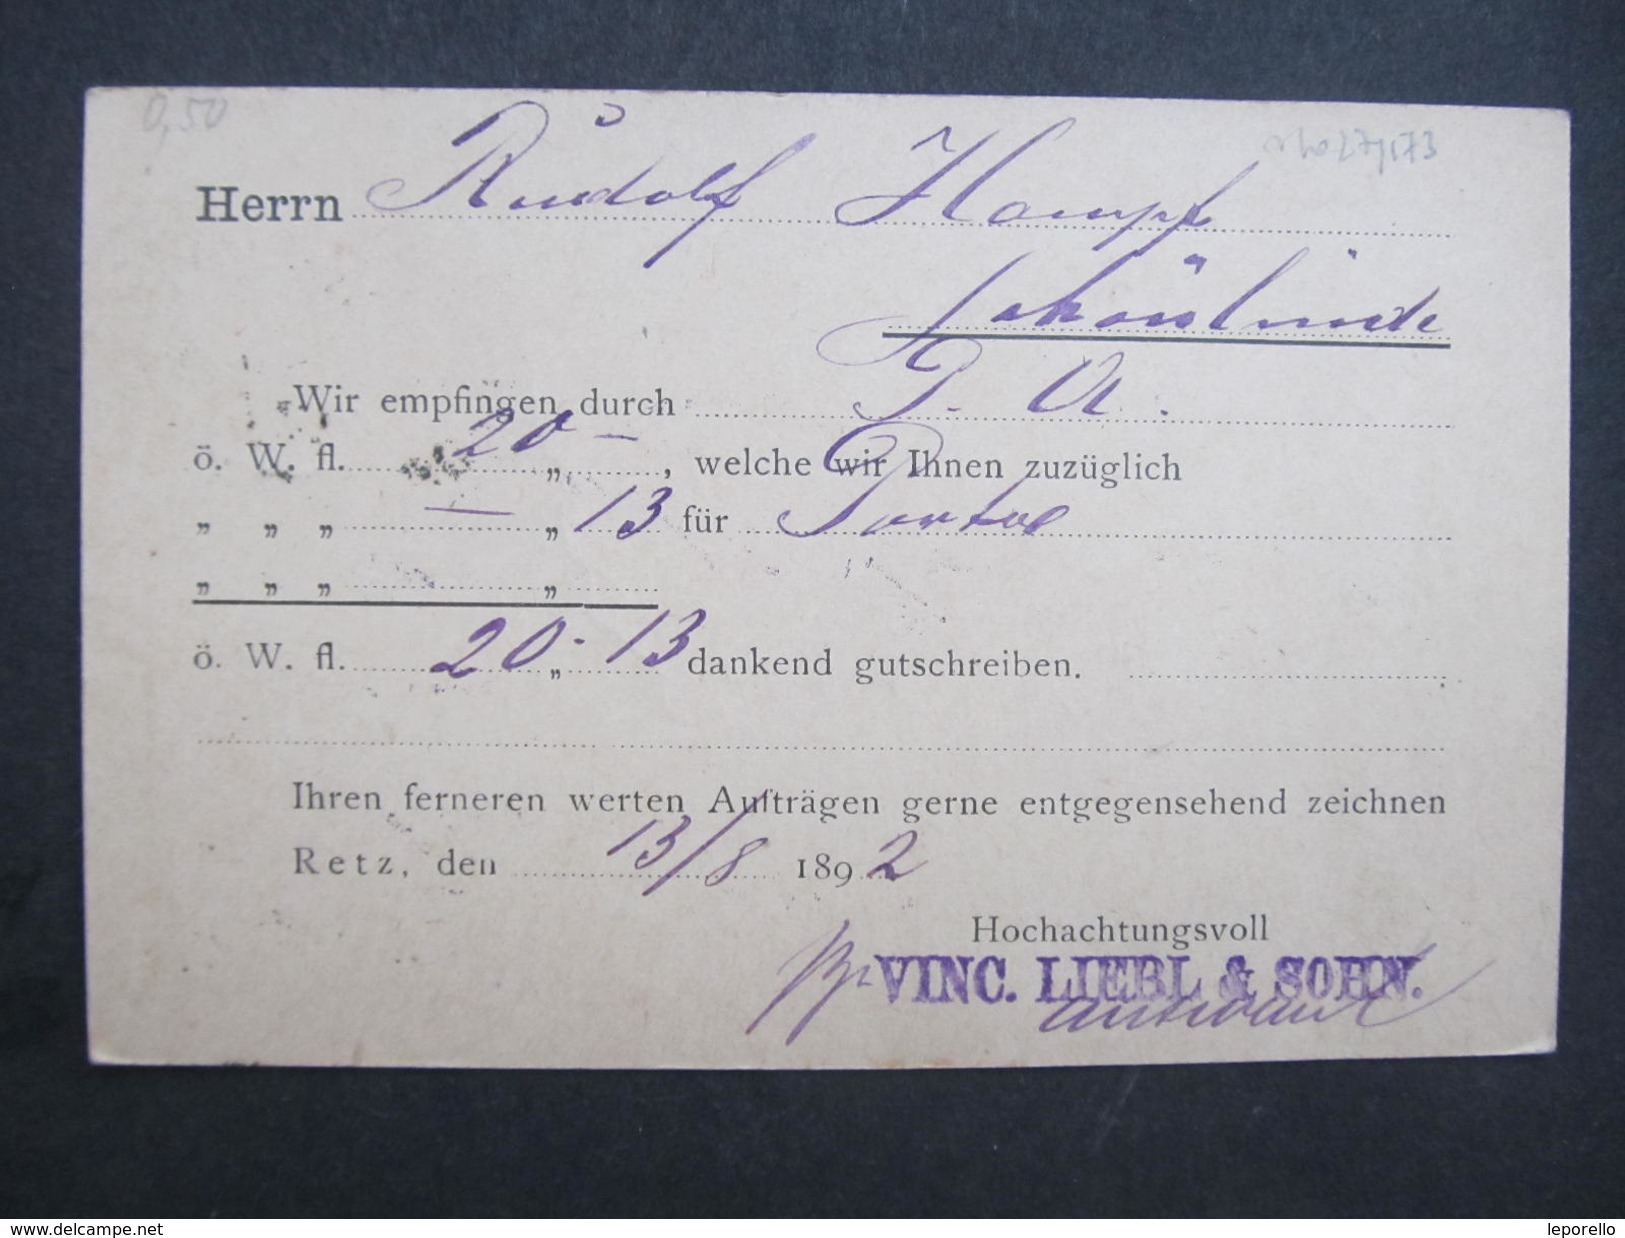 0,50
Herrn Rudolf Hampf
Schönlinde
Wir empfingen durch P. A.
ö. W. fl. 20 " — , welche wir Ihnen zuzüglich
" " " — " 13 für Porto
" " " "
ö. W. fl. 20 " 13 dankend gutschreiben.
Ihren ferneren werten Aufträgen gerne entgegensehend zeichnen
Retz, den 13/8 1892
Hochachtungsvoll
pp. VINC. LIEBL & SOHN.
www.delcampe.net
leporello